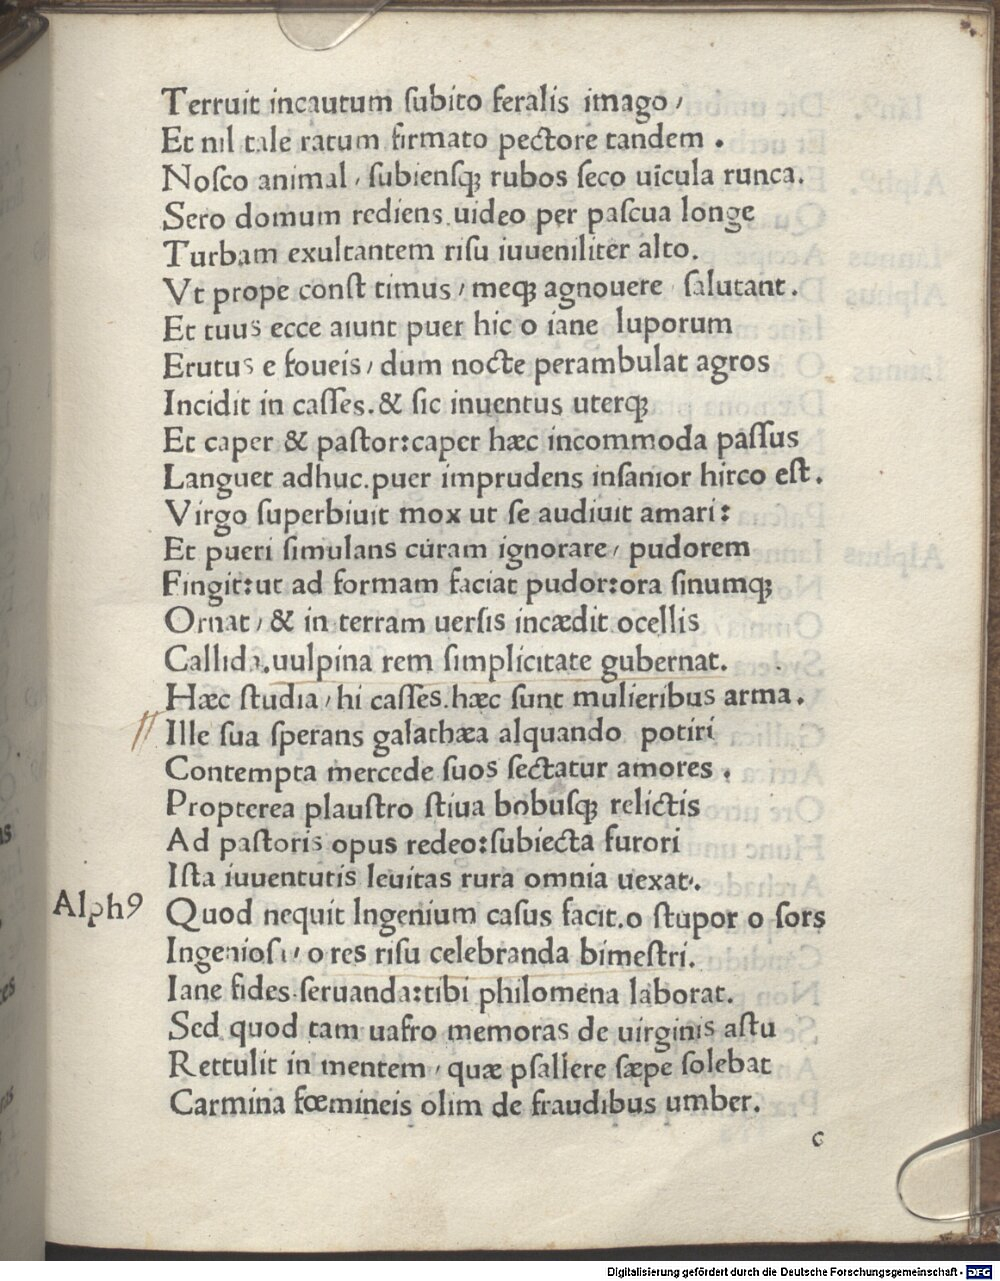 Terruit incautum ſubito feralis imago /
Et nil tale ratum firmato pectore tandem .
Noſco animal / ſubienſqꝫ rubos ſeco uicula runca.
Sero domum rediens uideo per paſcua longe
Turbam exultantem riſu iuueniliter alto.
Vt prope conſt timus / meqꝫ agnouere ſalutant .
Et tuus ecce aiunt puer hic o iane luporum
Erutus e foueis / dum nocte perambulat agros
Incidit in caſſes. & ſic inuentus uterqꝫ
Et caper & paſtor: caper hæc incommoda paſſus
Languet adhuc. puer imprudens inſanior hirco eſt .
Virgo ſuperbiuit mox ut ſe audiuit amari:
Et pueri ſimulans curam ignorare / pudorem
Fingit: ut ad formam faciat pudor: ora ſinumqꝫ
Ornat / & in terram uerſis incædit ocellis
Callida. uulpina rem ſimplicitate gubernat.
Hæc ſtudia / hi caſſes. hæc ſunt mulieribus arma .
Ille ſua ſperans galathæa alquando potiri
Contempta mercede ſuos ſectatur amores .
Propterea plauſtro ſtiua bobuſqꝫ relictis
Ad paſtoris opus redeo: ſubiecta furori
Iſta iuuentutis leuitas rura omnia uexat.
Alphꝰ Quod nequit Ingenium caſus facit. o ſtupor o ſors
Ingenioſi / o res riſu celebranda bimeſtri.
Iane fides ſeruanda: tibi philomena laborat.
Sed quod tam uafro memoras de uirginis aſtu
Rettulit in mentem / quæ pſallere ſæpe ſolebat
Carmina fœmineis olim de fraudibus umber.
c
Digitalisierung gefördert durch die Deutsche Forschungsgemeinschaft - DFG